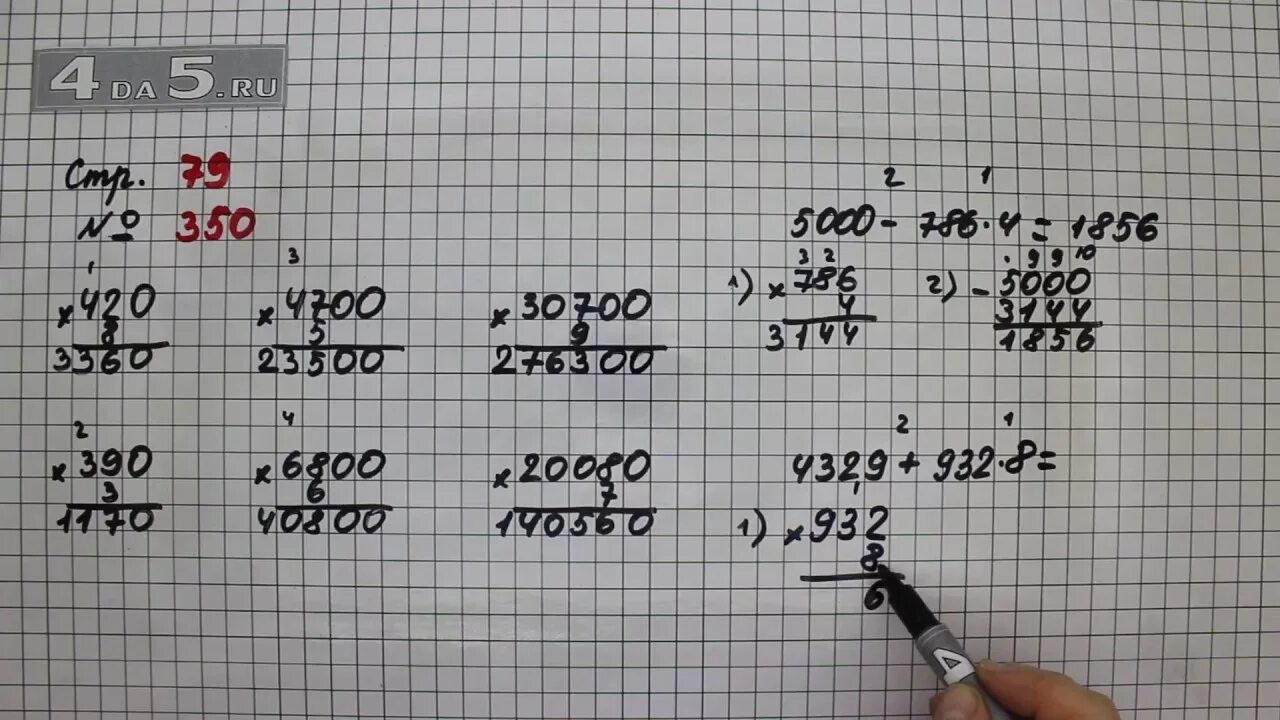 4 DA 5.RU
Стр. 79
№ 350
1
×420
8
3360
3
×4700
5
23500
×30700
9
276300
2
×390
3
1170
4
×6800
6
40800
×20080
7
140560
2 1
5000 - 786·4 = 1856
1) 3 2
×786
4
3144
2) . 9 9 10
-5000
3144
1856
2 1
4329 + 932·8 =
1) 1
×932
8
6